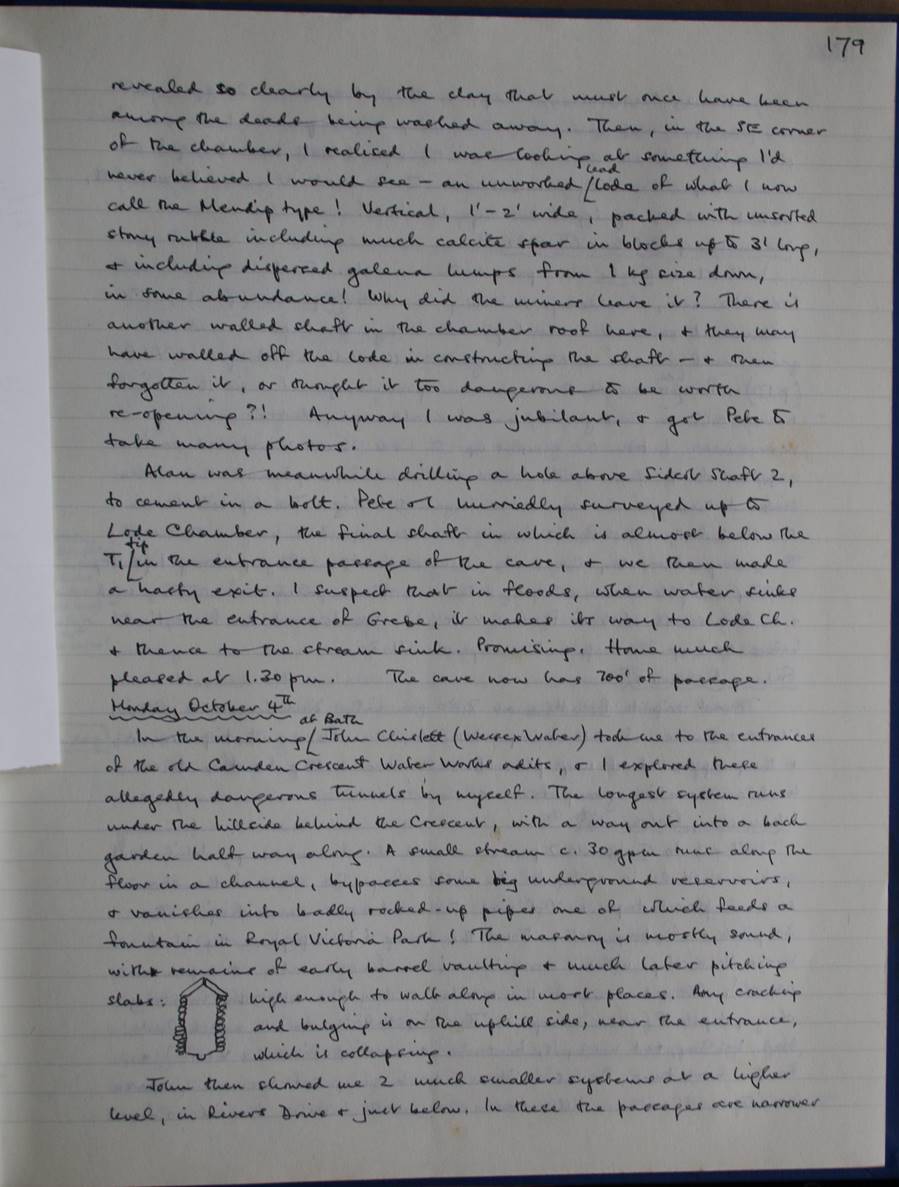 179
revealed so clearly by the clay that must once have been
among the deads being washed away. Then, in the SE corner
of the chamber, I realised I was looking at something I'd
never believed I would see – an unworked [lead lode of what I now
call the Mendip type! Vertical, 1'–2' wide, packed with unsorted
stony rubble including much calcite spar in blocks up to 3' long,
& including dispersed galena lumps from 1 kg size down,
in some abundance! Why did the miners leave it? There is
another walled shaft in the chamber roof here, & they may
have walled off the lode in constructing the shaft – & then
forgotten it, or thought it too dangerous to be worth
re-opening?! Anyway I was jubilant, & got Pete to
take many photos.
Alan was meanwhile drilling a hole above Sidcot Shaft 2,
to cement in a bolt. Pete & I hurriedly surveyed up to
Lode Chamber, the final shaft in which is almost below the
T1 [tip in the entrance passage of the cave, & we then made
a hasty exit. I suspect that in floods, when water sinks
near the entrance of Grebe, it makes its way to Lode Ch.
& thence to the stream sink. Promising. Home much
pleased at 1.30 pm. The cave now has 700' of passage.
Monday October 4th
In the morning [at Bath John Chislett (Wessex Water) took me to the entrances
of the old Camden Crescent Water Works adits, & I explored these
allegedly dangerous tunnels by myself. The longest system runs
under the hillside behind the Crescent, with a way out into a back
garden half way along. A small stream c. 30 gpm runs along the
floor in a channel, bypasses some big underground reservoirs,
& vanishes into badly rocked-up pipes one of which feeds a
fountain in Royal Victoria Park! The masonry is mostly sound,
with remains of early barrel vaulting & much later pitching
slabs: high enough to walk along in most places. Any cracking
and bulging is on the uphill side, near the entrance,
which is collapsing.
John then showed me 2 much smaller systems at a higher
level, in Rivers Drive & just below. In these the passages are narrower